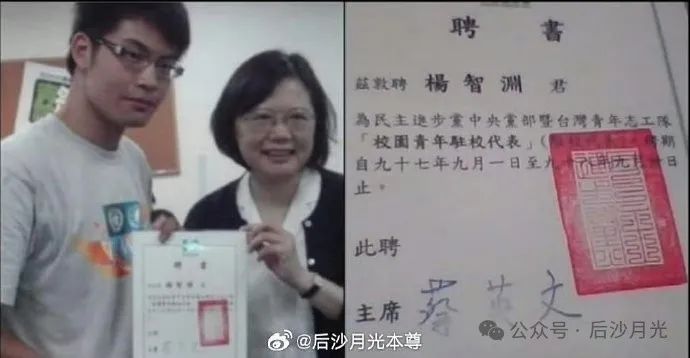 聘 書
聘 書
茲敦聘 楊智淵 君
為民主進步黨中央黨部暨台灣青年志工隊
「校園青年駐校代表」
自九十七年九月一日至九十
止。
此聘
主席 蔡英文
@后沙月光本尊
公众号·后沙月光